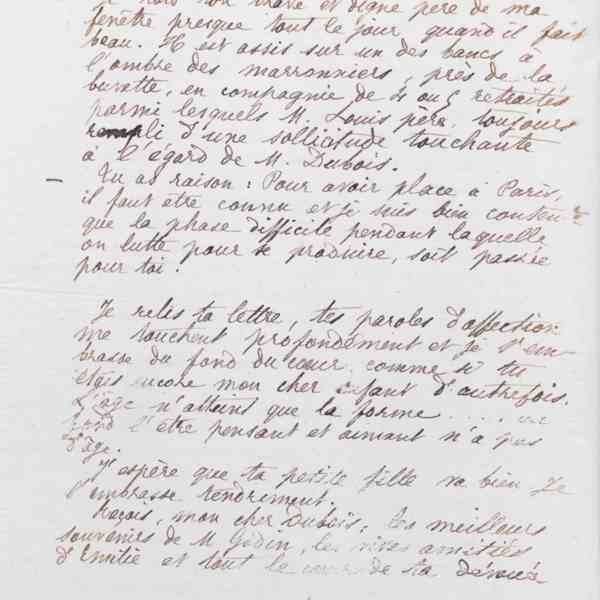 je vois ton brave et digne père de ma
fenêtre presque tout le jour quand il fait
beau. Il est assis sur un des bancs à
l'ombre des marronniers, près de la
buvette, en compagnie de 4 ou 5 retraités
parmi lesquels M. Louis père toujours
rempli d'une sollicitude touchante
à l'égard de M. Dubois.
Tu as raison : Pour avoir place à Paris,
il faut être connu et je suis bien contente
que la phase difficile pendant laquelle
on lutte pour se produire, soit passée
pour toi.
Je relis ta lettre, tes paroles d'affection
me touchent profondément et je t'em-
brasse du fond du cœur comme si tu
étais encore mon cher enfant d'autrefois.
L'âge n'atteint que la forme ....
fond l'être pensant et aimant n'a pas
d'âge.
J'espère que ta petite fille va bien Je
l'embrasse tendrement.
Reçois, mon cher Dubois, les meilleurs
souvenirs de M Godin, les vives amitiés
d'Emilie et tout le cœur de ta dévouée